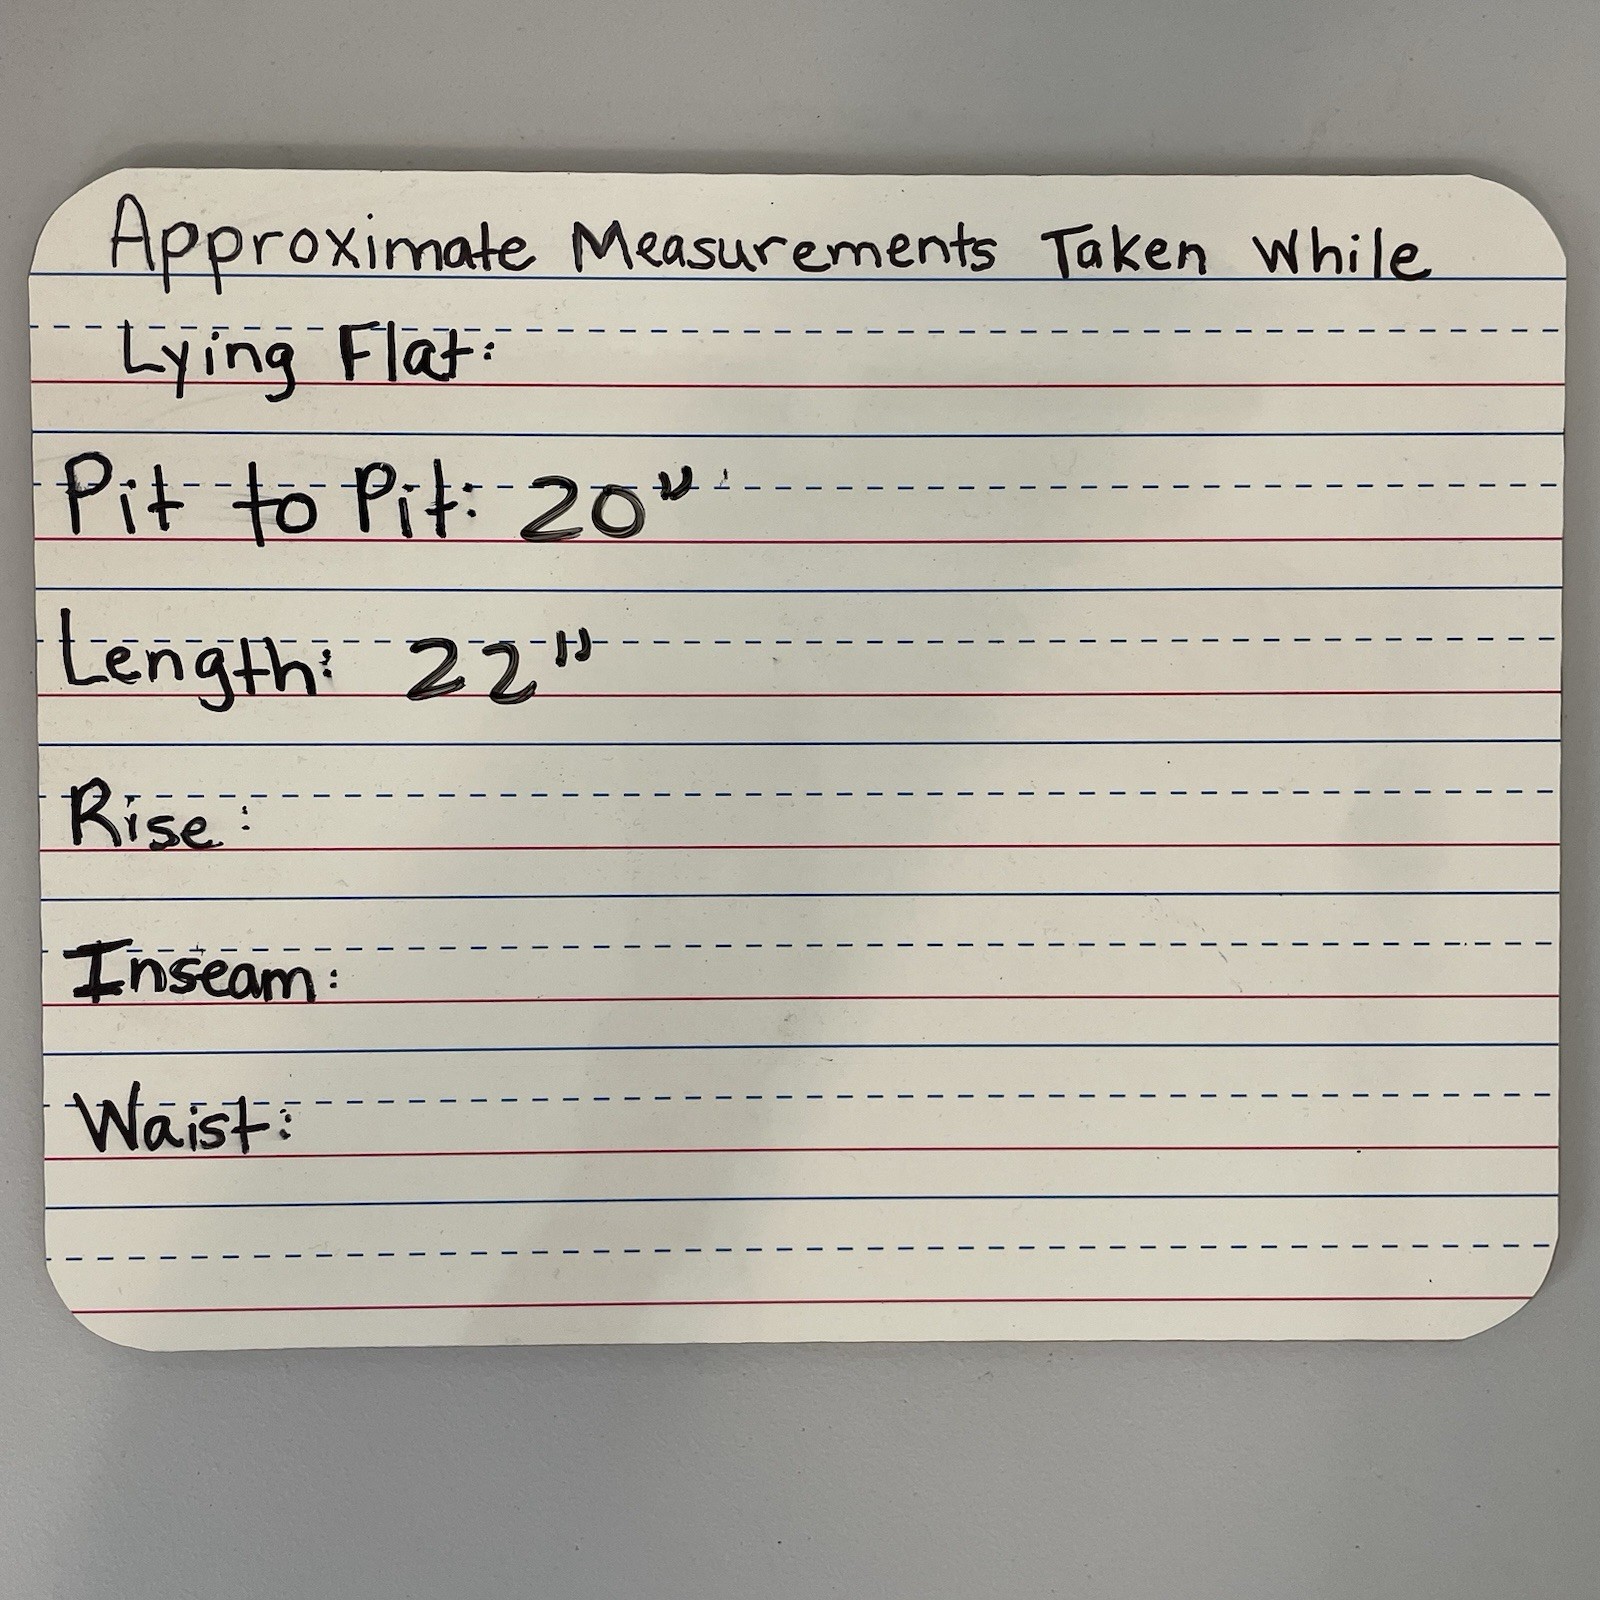 Approximate Measurements Taken While
Lying Flat:
Pit to Pit: 20"
Length: 22"
Rise:
Inseam:
Waist: